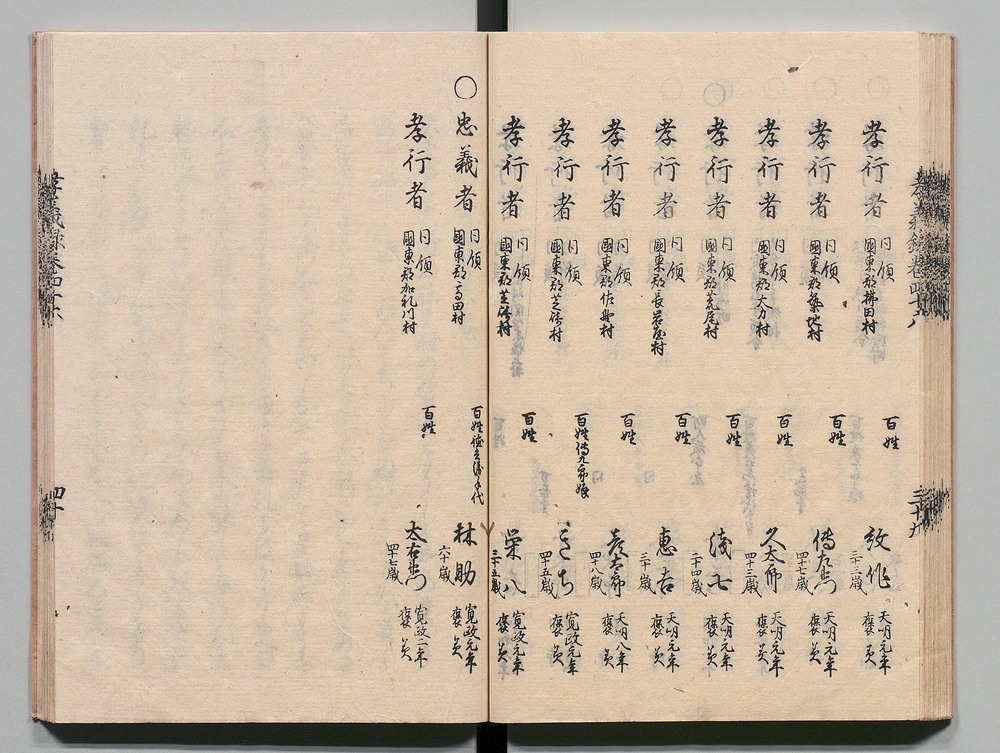 孝行者 同領 國東郡拂田村 百姓 紋作 三十三歳 天明元年 褒美
孝行者 同領 國東郡築地村 百姓 傳左衛門 四十七歳 天明元年 褒美
孝行者 同領 國東郡大力村 百姓 久太郎 四十三歳 天明元年 褒美
孝行者 同領 國東郡荒尾村 百姓 淺七 二十四歳 天明元年 褒美
孝行者 同領 國東郡長岩屋村 百姓 惠吉 三十歳 天明元年 褒美
孝行者 同領 國東郡佐野村 百姓 彦太郎 四十八歳 天明八年 褒美
孝行者 同領 國東郡芝崎村 百姓傳九郎娘 きち 四十五歳 寛政元年 褒美
孝行者 同領 國東郡芝崎村 百姓 栄八 三十五歳 寛政元年 褒美
○忠義者 同領 國東郡高田村 百姓 手代 林助 六十歳 寛政元年 褒美
孝行者 同領 國東郡加礼川村 百姓 太右衛門 四十七歳 寛政二年 褒美
孝義録巻四十八
三十九
四十